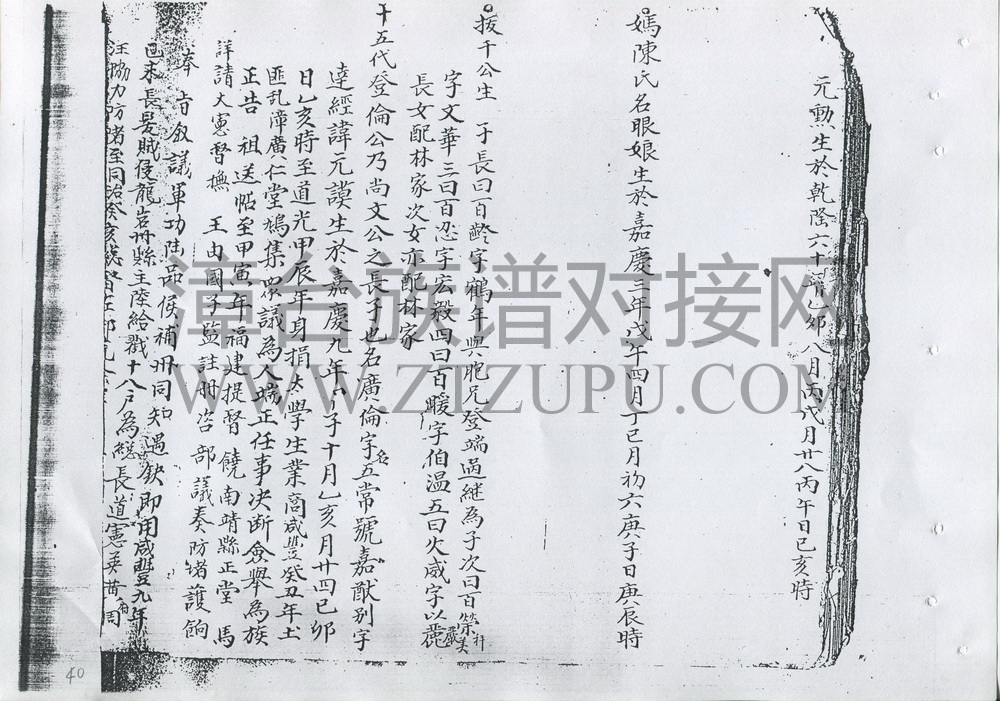 元勲生於乾隆六十年乙卯八月丙戌月廿八丙午日己亥時
媽陳氏名眼娘生於嘉慶三年戊午四月丁巳月初六庚子日庚辰時
拔千公生 子長曰百齡字鶴年與胞兄登端過継為子次曰百榮升
字文華三曰百忍字宏毅四曰百暖字伯温五曰火威字以麗
長女配林家次女亦配林家
十五代登倫公乃尚文公之長子也名廣倫字五常號嘉猷别字
達經諱元謨生於嘉慶九年甲子十月乙亥月廿四己卯
日乙亥時至道光甲辰年身捐太學生業高咸豐癸丑年土
匪乱漳廣仁堂鳩集眾議為人端正任事决断僉舉為族
正告 祖送帖至甲寅年福建提督 饒南靖縣正堂 馬
詳請大憲督撫 王由國子監註冊咨 部議奏防堵護餉
奉 旨叙議軍功陸品候補州同知遇缺即用咸豐九年
長髮賊侵龍岩州縣主陸給戳十八戶為総長道憲
汪協力防堵至同治癸亥
漳台族谱对接网
WWW.ZTZUPU.COM
40